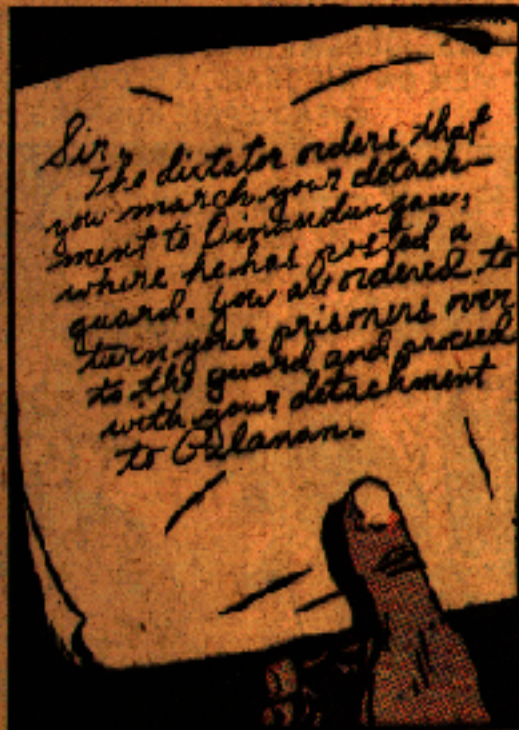 Sir,
The dictator orders that
you march your detach-
ment to Dinaudungaw,
where he has posted a
guard. You are ordered to
turn your prisoners over
to the guard and proceed
with your detachment
to Palanan.